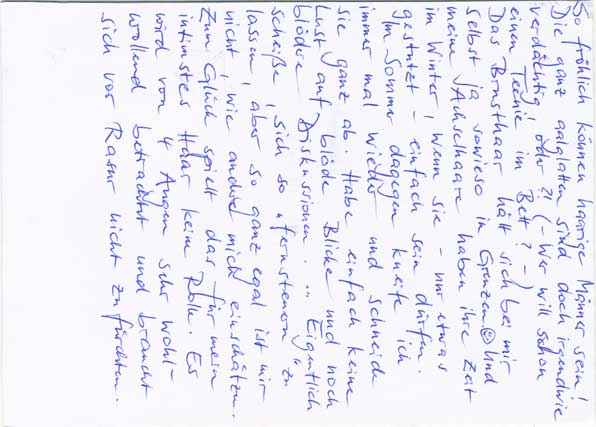 So fröhlich können haarige Männer sein!
Die ganz aalglatten sind doch irgendwie
verdächtig, oder?! (- Wer will schon
einen Teenie im Bett? -)
Das Brusthaar hält sich bei mir
selbst ja sowieso in Grenzen ☺ Und
meine Achselhaare haben ihre Zeit
im Winter, wenn sie - nur etwas
gestutzt - einfach sein dürfen.
Im Sommer dagegen kneife ich
immer mal wieder und schneide
sie ganz ab. Habe einfach keine
Lust auf blöde Blicke und noch
blödere Diskussionen. ... Eigentlich
scheiße, sich so "fernsteuern" zu
lassen, aber so ganz egal ist mir
nicht, wie andere mich einschätzen.
Zum Glück spielt das für mein
intimstes Haar keine Rolle. Es
wird von 4 Augen sehr wohl-
wollend betrachtet und braucht
sich vor Rasur nicht zu fürchten.